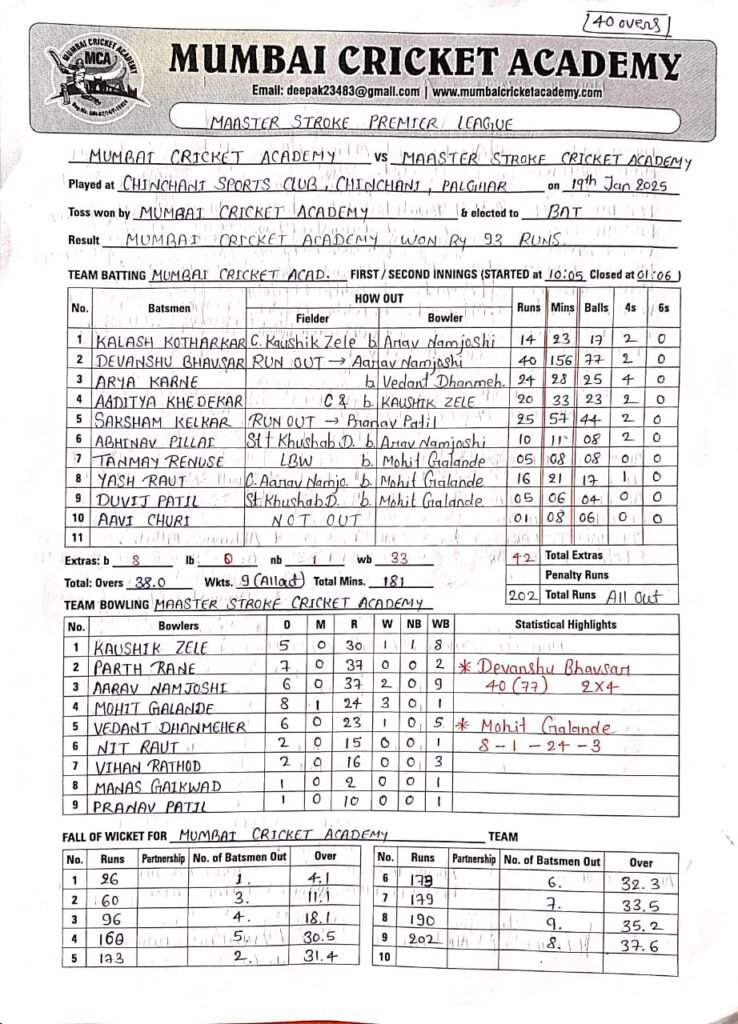 40 overs
MUMBAI CRICKET ACADEMY
MCA
MUMBAI CRICKET ACADEMY
Email: deepak23483@gmail.com | www.mumbaicricketacademy.com
MAASTER STROKE PREMIER LEAGUE
MUMBAI CRICKET ACADEMY vs MAASTER STROKE CRICKET ACADEMY
Played at CHINCHANI SPORTS CLUB, CHINCHANI, PALGHAR on 19th Jan 2025
Toss won by MUMBAI CRICKET ACADEMY & elected to BAT
Result MUMBAI CRICKET ACADEMY WON BY 93 RUNS.
TEAM BATTING MUMBAI CRICKET ACAD. FIRST / SECOND INNINGS (STARTED at 10:05 Closed at 01:06)
No. Batsmen HOW OUT Runs Mins Balls 4s 6s
Fielder Bowler
1 KALASH KOTHARKAR C. Kaushik Zele b Arav Namjoshi 14 23 17 2 0
2 DEVANSHU BHAVSAR RUN OUT → Aarav Namjoshi 40 156 77 2 0
3 ARYA KARNE b Vedant Dhanmeh. 24 28 25 4 0
4 AADITYA KHEDEKAR C & b. KAUSHIK ZELE 20 33 23 2 0
5 SAKSHAM KELKAR RUN OUT → Pranav Patil 25 57 44 2 0
6 ABHINAV PILLAI St † Khushab D. b. Arav Namjoshi 10 11 08 2 0
7 TANMAY RENUSE LBW b. Mohit Galande 05 08 08 0 0
8 YASH RAUT C. Aarav Namjo. b. Mohit Galande 16 21 17 1 0
9 DUVIJ PATIL St. Khushab D. b. Mohit Galande 05 06 04 0 0
10 AAVI CHURI NOT OUT 01 08 06 0 0
11
Extras: b 8 lb 0 nb 1 wb 33 42 Total Extras
Penalty Runs
Total: Overs 38.0 Wkts. 9 (All out) Total Mins. 181 202 Total Runs All Out
TEAM BOWLING MAASTER STROKE CRICKET ACADEMY
No. Bowlers O M R W NB WB Statistical Highlights
1 KAUSHIK ZELE 5 0 30 1 1 8
2 PARTH RANE 7 0 37 0 0 2 * Devanshu Bhavsar
3 AARAV NAMJOSHI 6 0 37 2 0 9 40 (77) 2x4
4 MOHIT GALANDE 8 1 24 3 0 1
5 VEDANT DHANMEHER 6 0 23 1 0 5 * Mohit Galande
6 NIT RAUT 2 0 15 0 0 1 8 - 1 - 24 - 3
7 VIHAN RATHOD 2 0 16 0 0 3
8 MANAS GAIKWAD 1 0 2 0 0 1
9 PRANAV PATIL 1 0 10 0 0 1
FALL OF WICKET FOR MUMBAI CRICKET ACADEMY TEAM
No. Runs Partnership No. of Batsmen Out Over No. Runs Partnership No. of Batsmen Out Over
1 26 1. 4.1 6 179 6. 32.3
2 60 3. 11.1 7 179 7. 33.5
3 96 4. 18.1 8 190 9. 35.2
4 160 5. 30.5 9 202 8. 37.6
5 173 2. 31.4 10